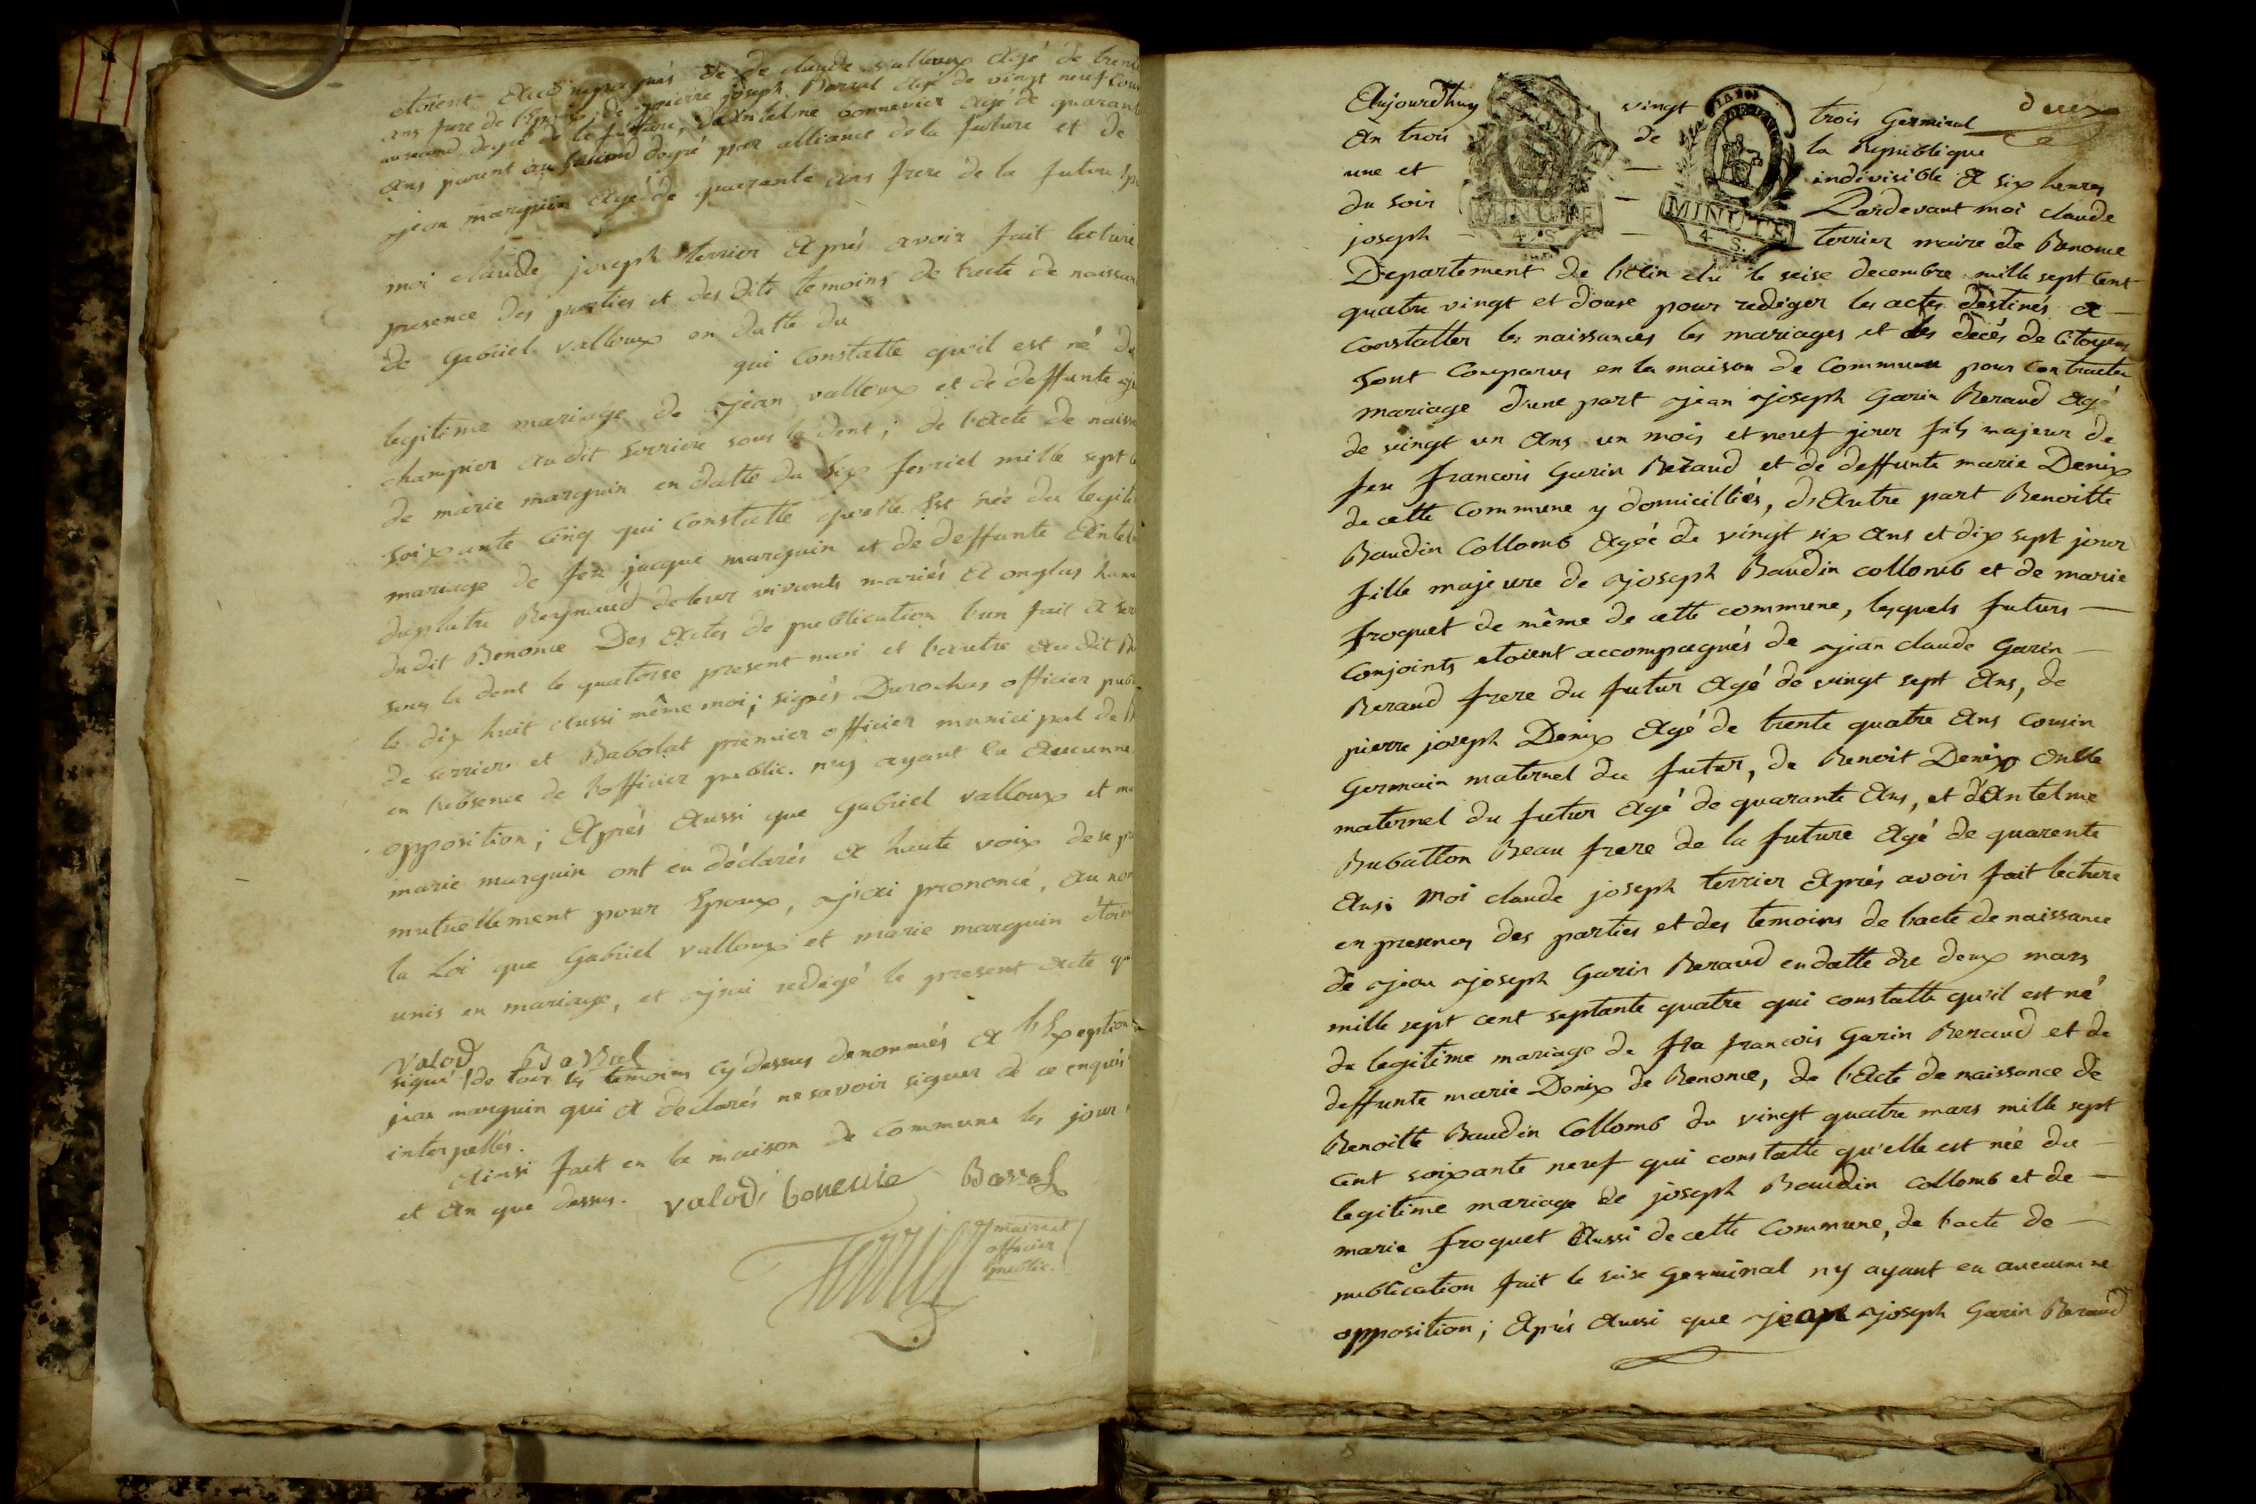 étoient accompagnés de de claude valloux agé de trente
ans frere de l'epoux, de pierre joseph Barral agé de vingt neuf
au second degré de la future, d'antelme bonnevier agé de quarante
ans parent au second degré par alliance de la future et de
jean marguin agé de quarante ans frere de la future
moi claude joseph terrier aprés avoir fait lecture
presence des parties et des dits temoins de l'acte de
de Gabriel valloux en datte du
qui constatte qu'il est né du
legitime mariage de jean valloux et de deffunte
champier audit serriere sous la dent; de l'acte de
de marie marguin en datte du six fevriel mille sept
soixante cinq qui constatte qu'elle est née du
mariage de feu jacque marguin et de deffunte
duplatre Reynaud de leur vivants mariés a onglas
du dit Benonce Des actes de publication l'un fait a
sous la dent le quatorse present mois et l'autre au dit
le dix huit aussi même moi; signés Durochas officier
de serriere et Babolat premier officier municipal de
en l'absence de l'officier public. n'y ayant eu aucunne
opposition; aprés aussi que gabriel valloux et
marie marguin ont eu déclarés a haute voix de se
mutuellement pour Epoux, j'ai prononcé, au nom
la Loi que Gabriel valloux et marie marguin
unis en mariage, et j'ai redigé le present acte
valod Barral
signé de tous les temoins cy dessus denommés a l'Exeption
jean marguin qui a declarés ne savoir signer de ce enquis
interpellés.
ainsi fait en la maison de commune les jour
et an que dessus. valod bonevie Barral
terrier maire et
officier
public.
deux
Aujourd'huy vingt trois Germinal
an trois de la Republique
une et indivisible a six heures
du soir Pardevant moi claude
joseph terrier maire de Benonce
MINUTE
4. S.
MINUTE
4 S.
Departement de l'Ain elu le seise decembre mille sept cent
quatre vingt et douse pour rediger les actes destinés a
constatter les naissances les mariages et les decés de Citoyens
sont Comparus en la maison de Commune pour contracter
mariage d'une part jean joseph Garin Beraud agé
de vingt un ans un mois et neuf jour fils majeur de
feu francois Garin Beraud et de deffunte marie Denix
de cette Commune y domicilliés, d'autre part Benoitte
Baudin Collomb agée de vingt six ans et dix sept jour
fille majeure de joseph Baudin collomb et de marie
froquet de même de cette commune, lesquels futurs
Conjoints etoient accompagnés de jean claude Garin
Beraud frere du futur agé de vingt sept ans, de
pierre joseph Denix agé de trente quatre ans cousin
Germain maternel du futur, de Benoit Denix onlle
maternel du futur agé de quarante ans, et d'Antelme
Bubatton Beau frere de la future agé de quarente
ans; moi claude joseph terrier aprés avoir fait lecture
en presences des parties et des temoins de l'acte de naissance
de jean joseph Garin Beraud en datte du deux mars
mille sept cent septante quatre qui constatte qu'il est né
du legitime mariage de feu francois Garin Beraud et de
deffunte marie Denix de Benonce, de l'Acte de naissance de
Benoitte Baudin Collomb du vingt quatre mars mille sept
cent soixante neuf qui constatte qu'elle est née du
legitime mariage de joseph Baudin collomb et de
marie froquet aussi de cette Commune, de l'acte de
publication fait le seise germinal n'y ayant eu aucunne
opposition; aprés aussi que jean joseph Garin Beraud